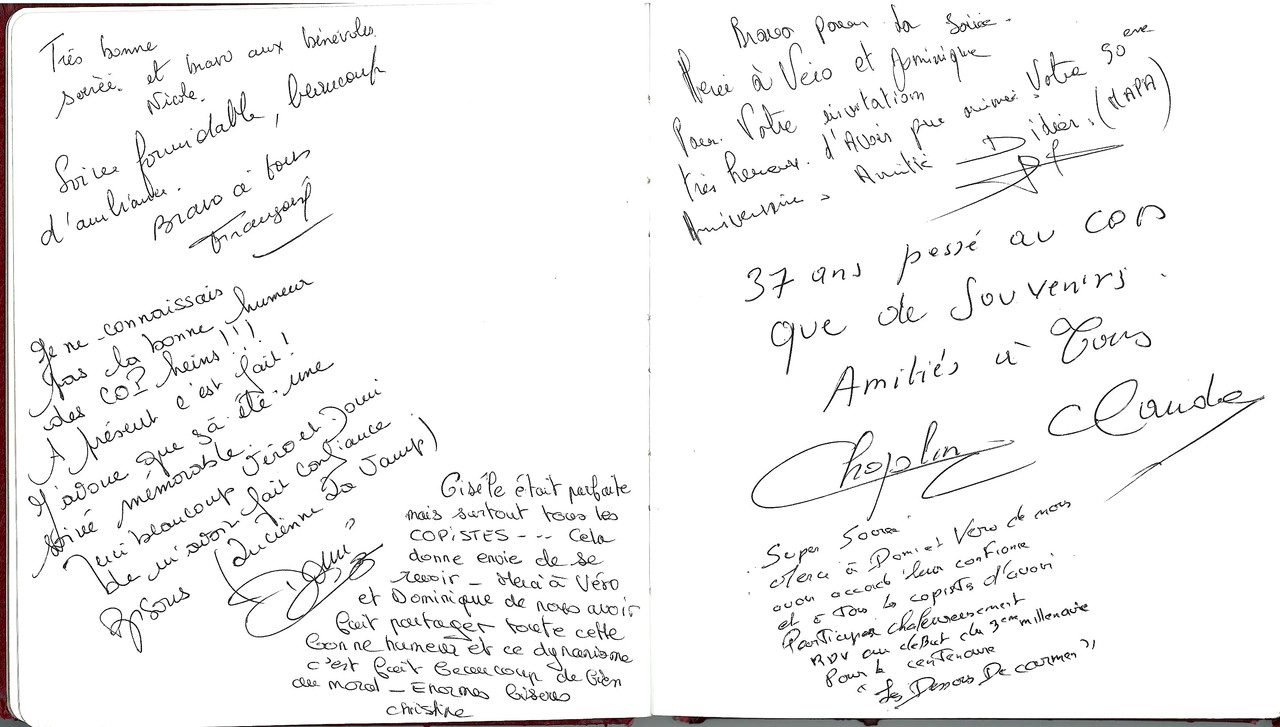 Très bonne
soirée. et bravo aux bénévoles.
Nicole.
Soirée formidable, beaucoup
d'ambiance.
Bravo à tous
Françoise
Je ne connaissais
pas la bonne humeur
des COP heins!!!
A présent c'est fait!!!
J'avoue que çà été une
soirée mémorable
Merci beaucoup Véro et Domi
de m'avoir fait confiance
Bisous (Lucienne La Vamp)
Gisèle était parfaite
mais surtout tous les
COPISTES --- Cela
donne envie de se
revoir - Merci à Véro
et Dominique de nous avoir
fait partager toute cette
bonne humeur et ce dynanisme
c'est fait beaucoup de bien
au moral - Enormes bisous
christine
Bravo pour la soirée.
Merci à Véro et Dominique
Pour Votre invitation
très heureux d'Avoir pu animé Votre 50eme
Anniversaire. Amitié Didier. (MAPA)
37 ans passé au COP
que de Souvenirs.
Amitiés à Tous
Choplin Claude
Super Soirée
Merci à Domi et Véro de nous
avoir accordé leur confiance
et à Tous les copists d'avoir
Participer chaleureusement
RDV au début du 3ème millénaire
Pour le centenaire
"Les Dessous De carmen"